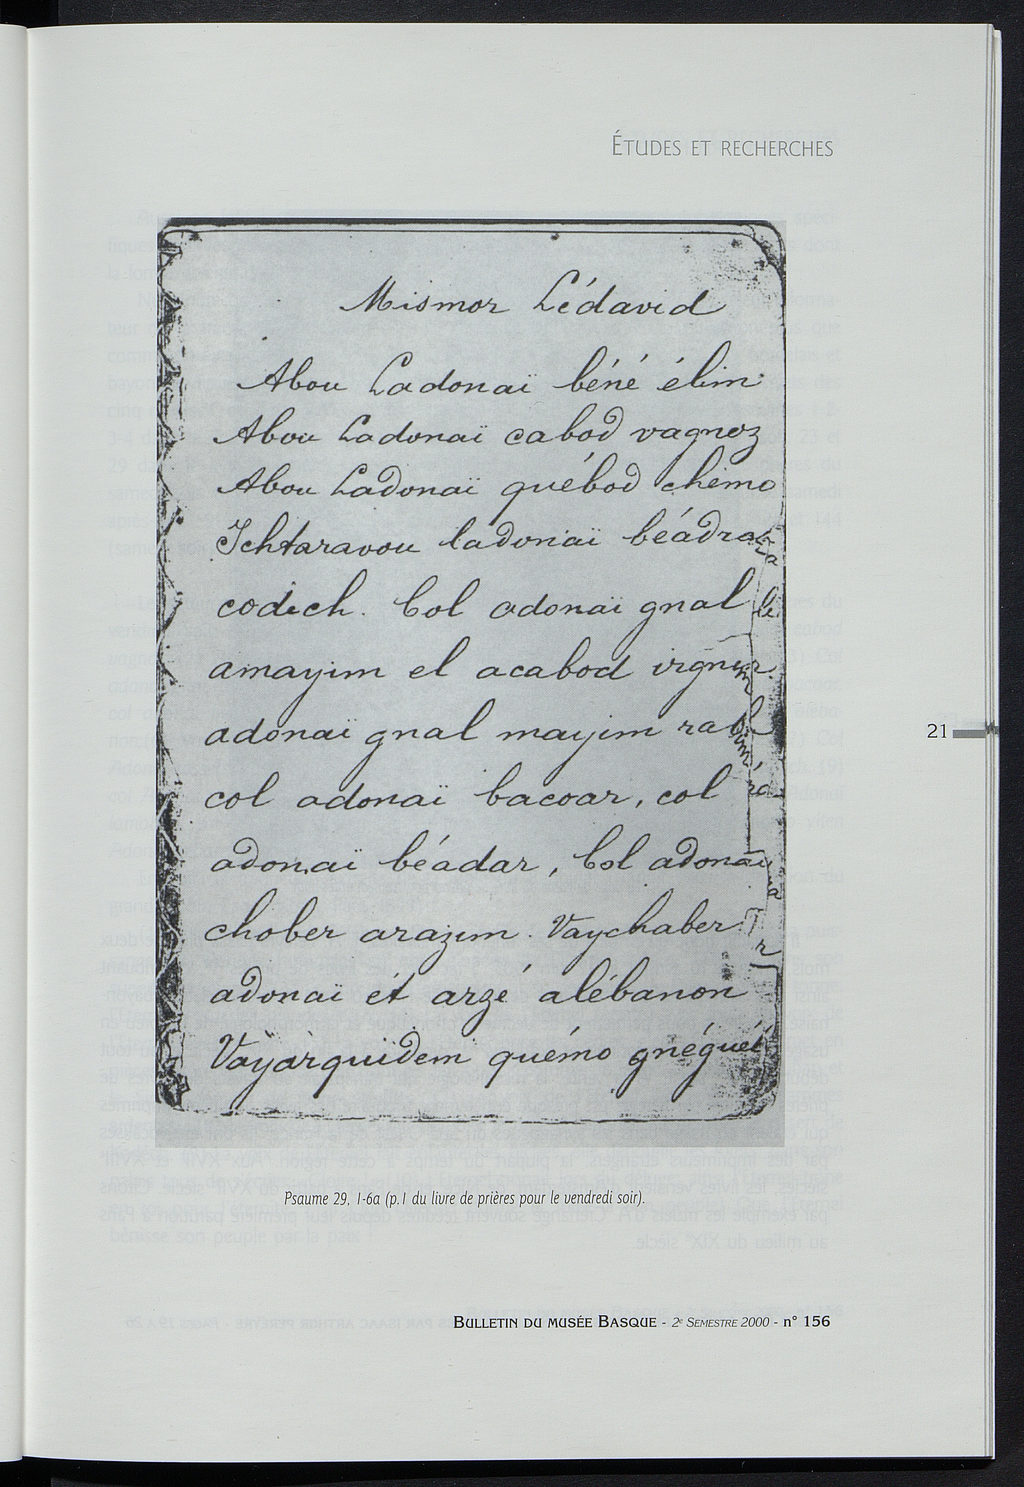 ÉTUDES ET RECHERCHES
Mismor Lédavid
Abou Ladonaï béné élim
Abou Ladonaï cabod vagnoz
Abou Ladonaï québod chémo
Ichtaravou ladonaï béádrat
codech. Col adonaï gnal
amayim el acabod irgnim
adonaï gnal mayim rab
col adonaï bacoar, col
adonaï béadar, Col adonaï
chober arazim. Vaychaber
adonaï ét arzé alébanon
Vayarquidem quémo gnéguel
21
Psaume 29, 1-6a (p.1 du livre de prières pour le vendredi soir).
BULLETIN DU MUSÉE BASQUE - 2e SEMESTRE 2000 - n° 156